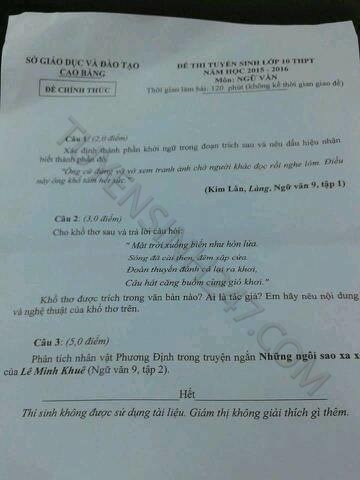 SỞ GIÁO DỤC VÀ ĐÀO TẠO
CAO BẰNG
ĐỀ CHÍNH THỨC
ĐỀ THI TUYỂN SINH LỚP 10 THPT
NĂM HỌC 2015 - 2016
Môn: NGỮ VĂN
Thời gian làm bài: 120 phút (không kể thời gian giao đề)
Câu 1: (2,0 điểm)
Xác định thành phần khởi ngữ trong đoạn trích sau và nêu dấu hiệu nhận
biết thành phần đó.
"Ông cứ đứng vờ vờ xem tranh ảnh chờ người khác đọc rồi nghe lỏm. Điều
này ông khổ tâm hết sức."
(Kim Lân, Làng, Ngữ văn 9, tập 1)
Câu 2: (3,0 điểm)
Cho khổ thơ sau và trả lời câu hỏi:
"Mặt trời xuống biển như hòn lửa.
Sóng đã cài then, đêm sập cửa.
Đoàn thuyền đánh cá lại ra khơi,
Câu hát căng buồm cùng gió khơi."
Khổ thơ được trích trong văn bản nào? Ai là tác giả? Em hãy nêu nội dung
và nghệ thuật của khổ thơ trên.
Câu 3: (5,0 điểm)
Phân tích nhân vật Phương Định trong truyện ngắn Những ngôi sao xa x
của Lê Minh Khuê (Ngữ văn 9, tập 2).
Hết
Thí sinh không được sử dụng tài liệu. Giám thị không giải thích gì thêm.
TUYENSINH247.COM